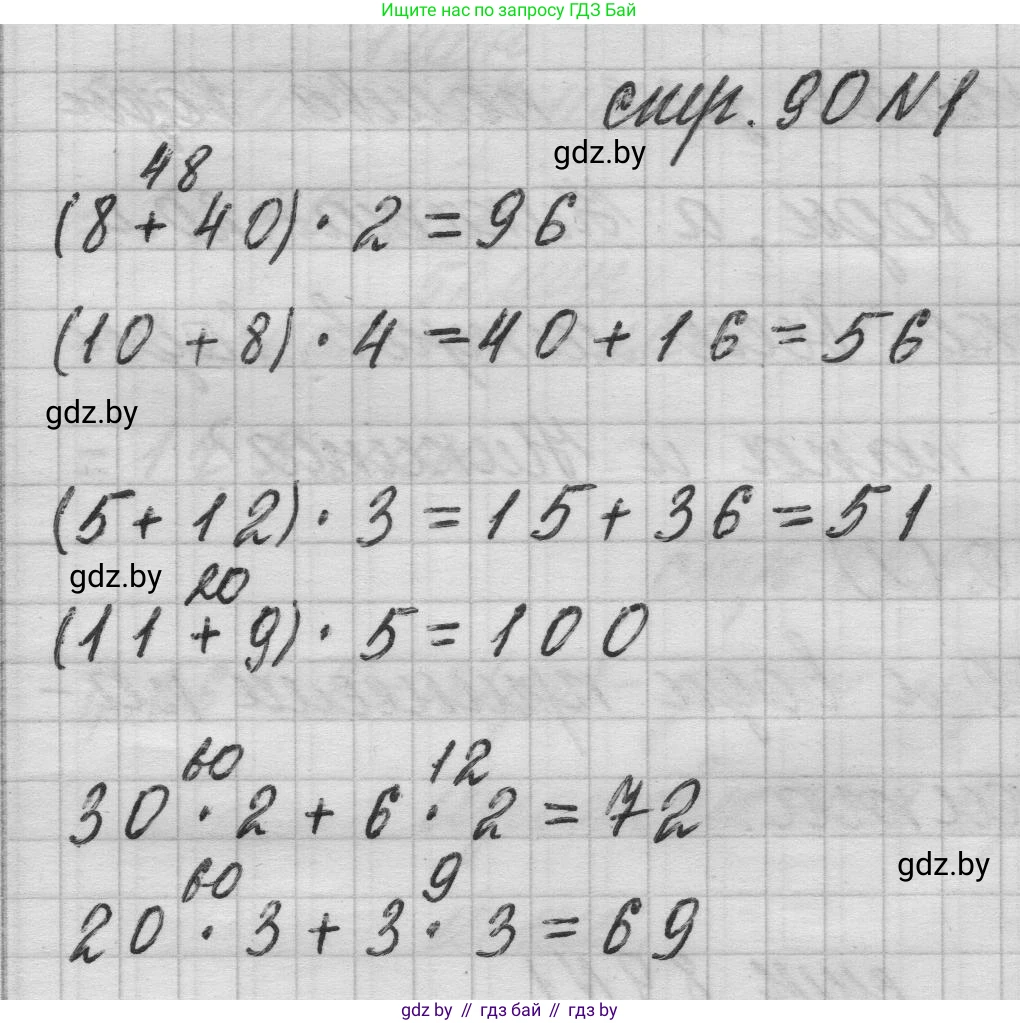 Ищите нас по запросу ГДЗ Бай
стр. 90 N1
gdz.by
48
(8 + 40) · 2 = 96
(10 + 8) · 4 = 40 + 16 = 56
gdz.by
(5 + 12) · 3 = 15 + 36 = 51
gdz.by
20
(11 + 9) · 5 = 100
60 12
30 · 2 + 6 · 2 = 72
gdz.by
60 9
20 · 3 + 3 · 3 = 69
gdz.by // гдз бай // gdz.by